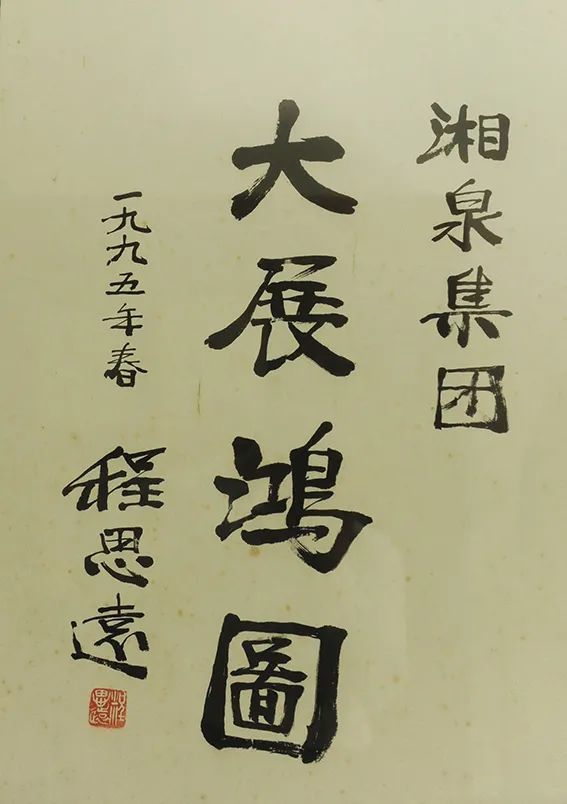 湘泉集团
大展鴻圖
一九九五年春
程思遠